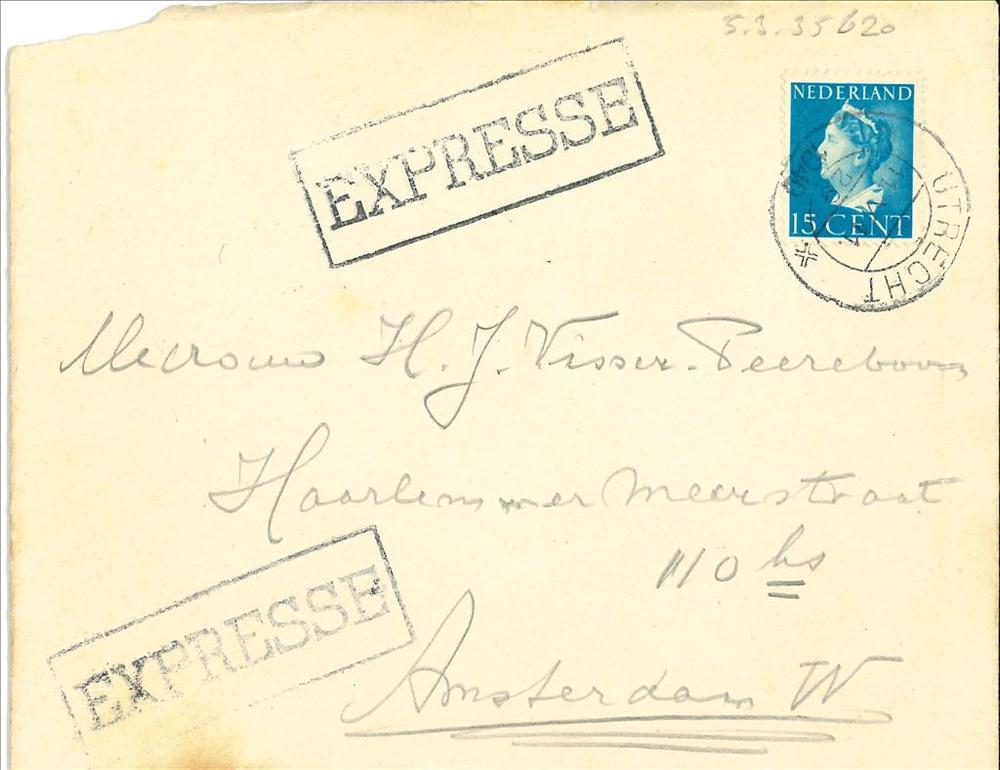 5.3.35620
EXPRESSE
NEDERLAND
15 CENT
UTRECHT
Mevrouw H. J. Visser-Peereboom
Haarlemmermeerstraat
110 hs
EXPRESSE
Amsterdam W